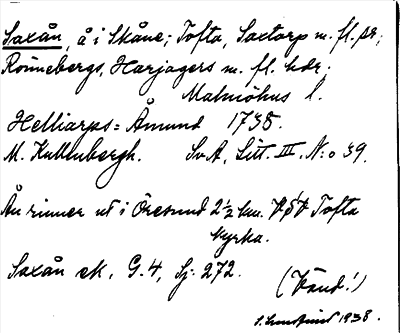 Saxån, å i Skåne; Tofta, Saxtorp m. fl. sr;
Rönnebergs, Harjagers m. fl. hdr;
Malmöhus l.
Helliarps= Åmund 1738.
M. Kullenbergh. Sv. A. Litt. III. N:o 39.
Ån rinner ut i Öresund 2½ km. VSV Tofta
kyrka.
Saxån ek. G. 4, Sj: 272.
(Vänd!)
1938.